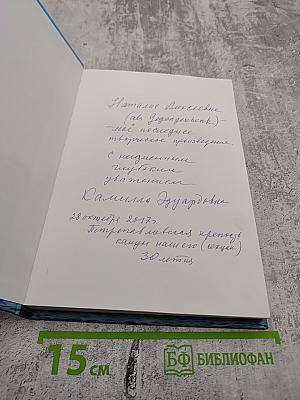 Наталье Алексеевне
(als Gegengeschenk) –
– моё последнее
творческое произведение.
С неизменным
глубоким
уважением
Камилла Эдуардовна
28 октября 2017 г.
Петропавловская крепость
нашего (секции)
30-летия
15 СМ
БФ БИБЛИОФАН